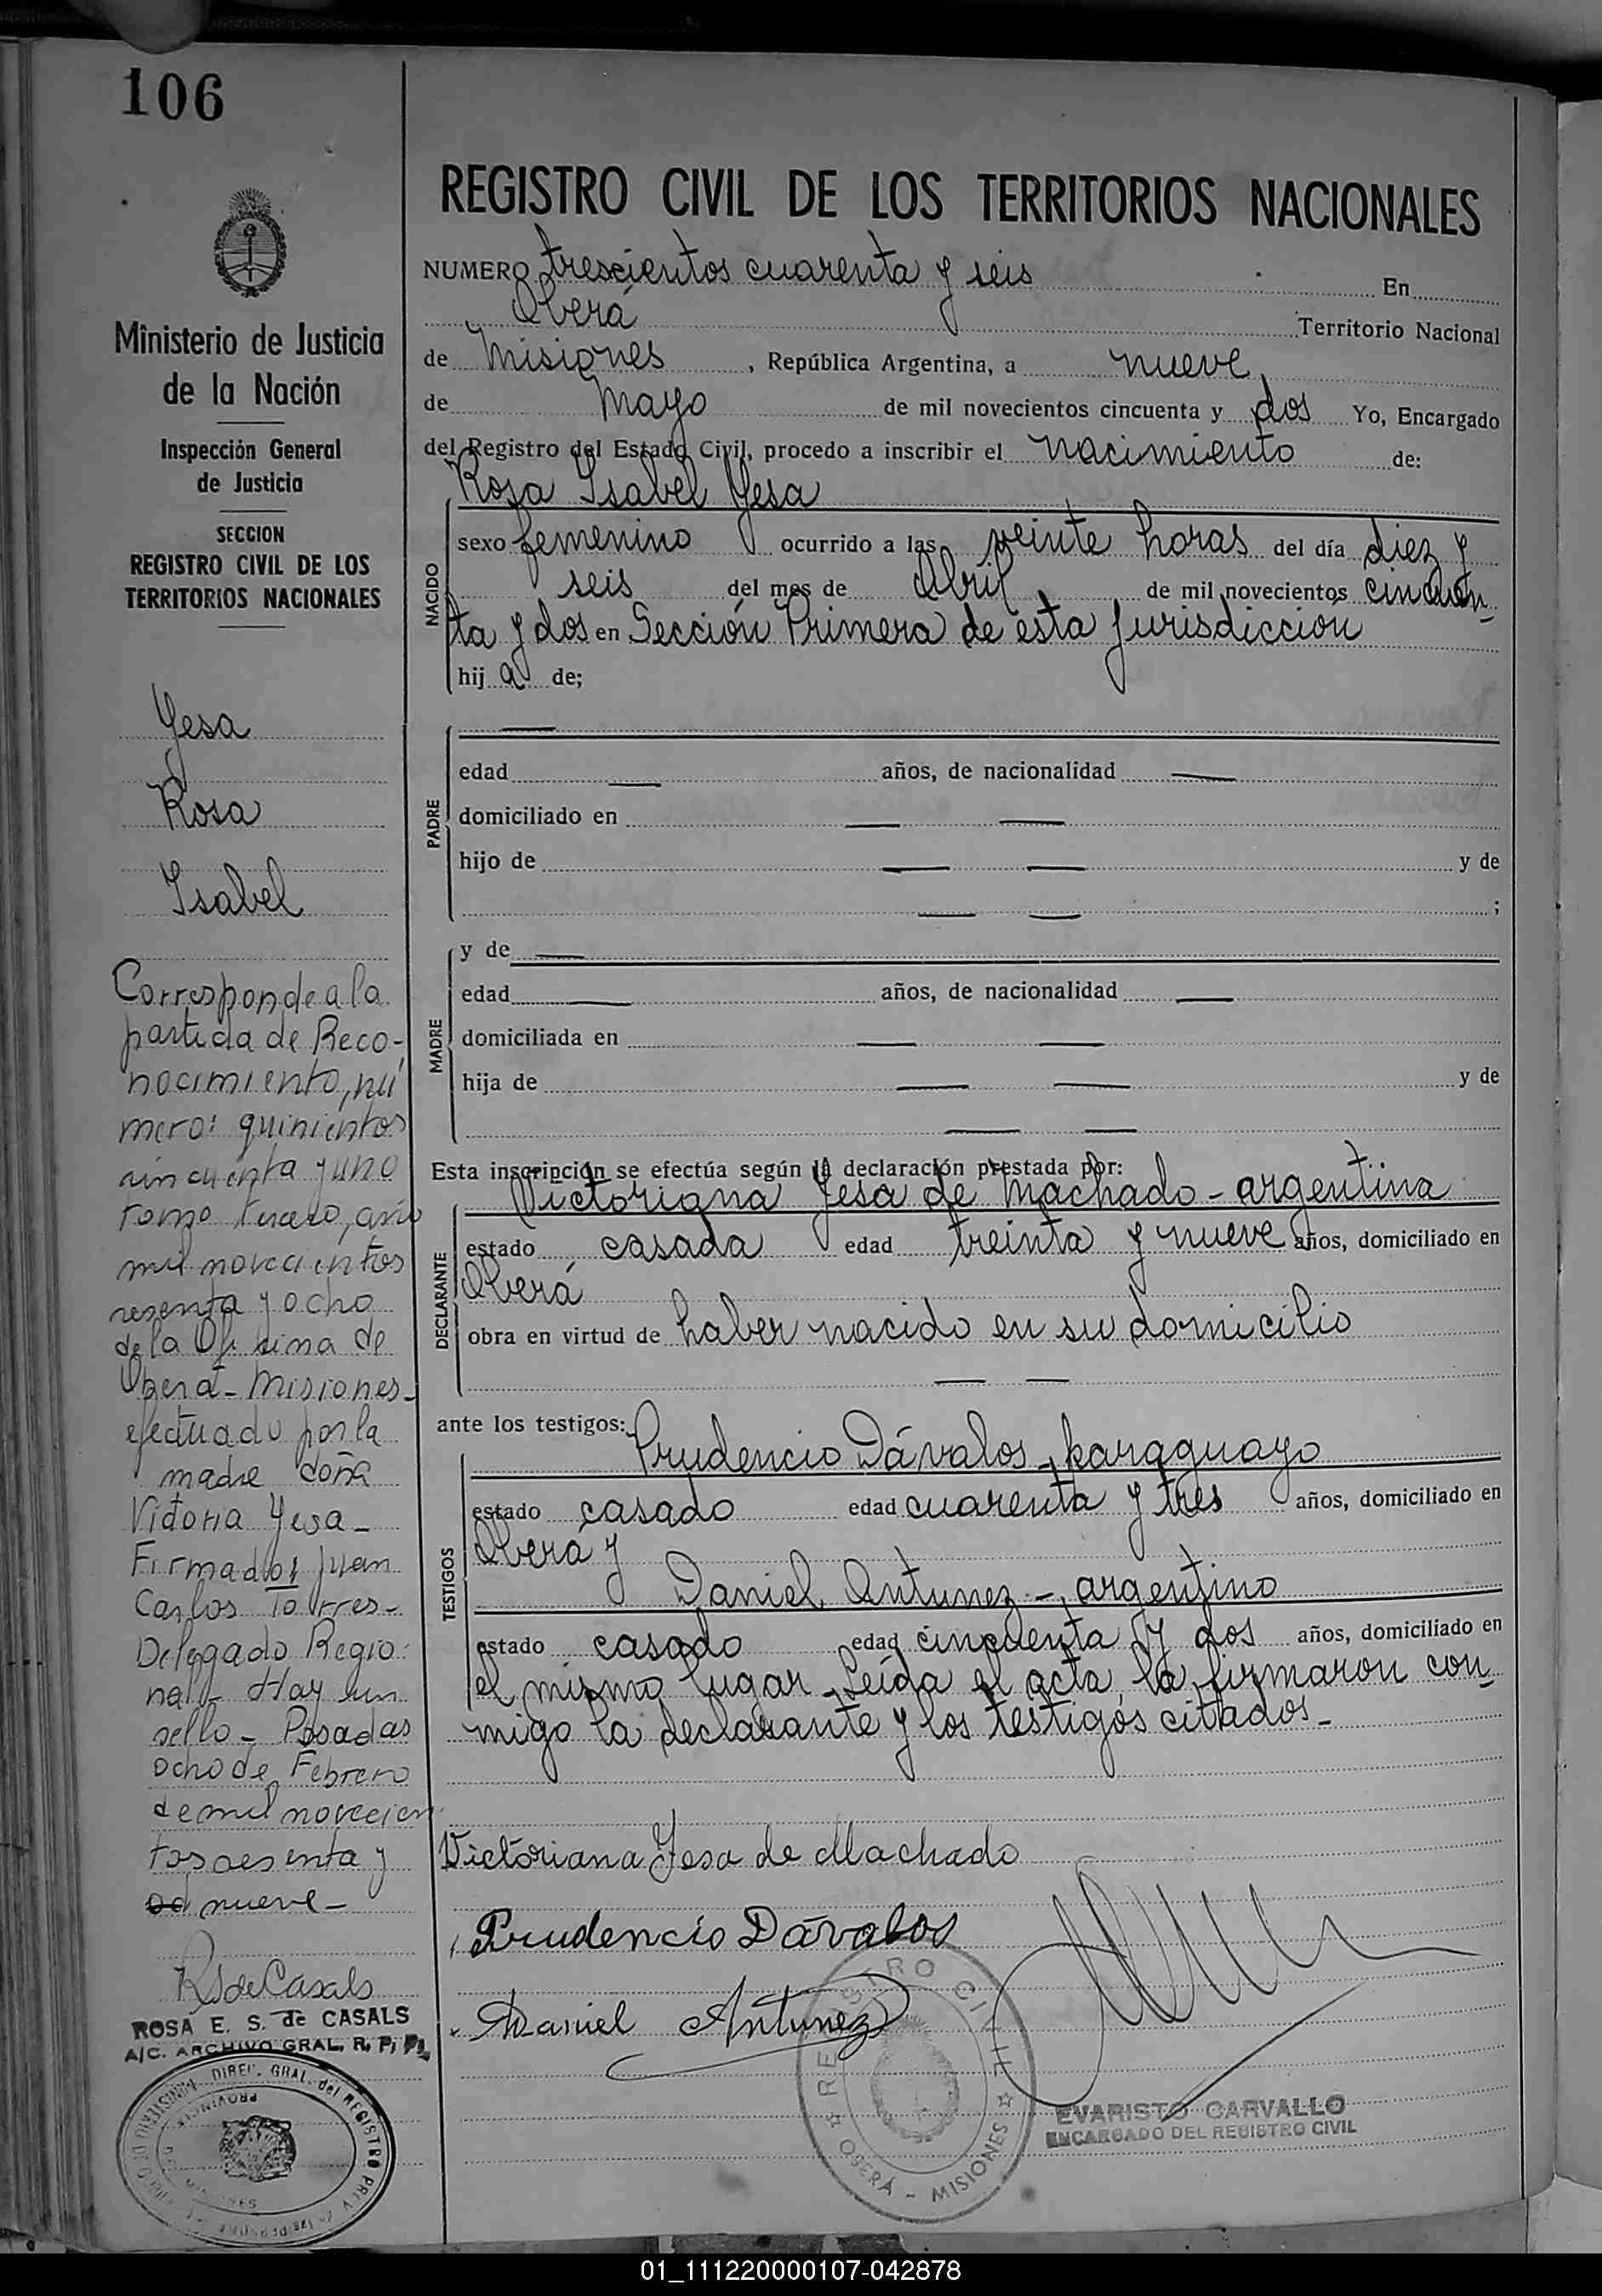 106
REGISTRO CIVIL DE LOS TERRITORIOS NACIONALES
NUMERO trescientos cuarenta y seis En
Oberá Territorio Nacional
de Misiones, República Argentina, a nueve
de Mayo de mil novecientos cincuenta y dos Yo, Encargado
del Registro del Estado Civil, procedo a inscribir el nacimiento de:
Rosa Isabel Yesa
NACIDO
sexo femenino ocurrido a las veinte horas del día diez y
seis del mes de Abril de mil novecientos cincuen-
ta y dos en Sección Primera de esta jurisdicción
hij a de;
PADRE
edad años, de nacionalidad
domiciliado en
hijo de y de
;
MADRE
y de
edad años, de nacionalidad
domiciliada en
hija de y de
Esta inscripción se efectúa según la declaración prestada por:
Victoriana Yesa de Machado - argentina
DECLARANTE
estado casada edad treinta y nueve años, domiciliado en
Oberá
obra en virtud de haber nacido en su domicilio
ante los testigos:
Prudencio Dávalos - paraguayo
TESTIGOS
estado casado edad cuarenta y tres años, domiciliado en
Oberá y
Daniel Antunez -, argentino
estado casado edad cincuenta y dos años, domiciliado en
el mismo lugar - Leída el acta, la firmaron con-
migo la declarante y los testigos citados -
Victoriana Yesa de Machado
Prudencio Dávalos
Daniel Antunez
REGISTRO CIVIL
OBERÁ - MISIONES
EVARISTO CARVALLO
ENCARGADO DEL REGISTRO CIVIL
Ministerio de Justicia
de la Nación
Inspección General
de Justicia
SECCION
REGISTRO CIVIL DE LOS
TERRITORIOS NACIONALES
Yesa
Rosa
Isabel
Corresponde a la
partida de Reco-
nocimiento, nú
mero: quinientos
cincuenta y uno
Tomo tercero, año
mil novecientos
sesenta y ocho
de la Oficina de
Oberá - Misiones -
efectuado por la
madre doña
Victoria Yesa -
Firmado: Juan
Carlos Torres -
Delegado Regio-
nal - Hay un
sello - Posadas
ocho de Febrero
de mil novecien
tos sesenta y
nueve -
RSdeCasals
ROSA E. S. de CASALS
A/C. ARCHIVO GRAL. R. P. P.
DIREC. GRAL. del REGISTRO PROV. de las PERSONAS
PROVINCIA
MISIONES
01_111220000107-042878